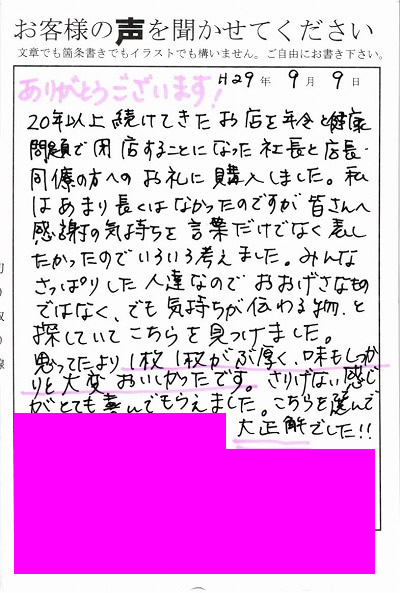 お客様の声を聞かせてください
文章でも箇条書きでもイラストでも構いません。ご自由にお書き下さい。
H29年 9月 9日
ありがとうございます!
20年以上続けてきたお店を年令と健康
問題で閉店することになった社長と店長・
同僚の方へのお礼に購入しました。私
はあまり長くはなかったのですが皆さんへ
感謝の気持ちを言葉だけでなく表し
たかったのでいろいろ考えました。みんな
さっぱりした人達なのでおおげさなもの
ではなく、でも気持ちが伝わる物、と
探していてこちらを見つけました。
思ってたより1枚1枚がぶ厚く、味もしっか
りと大変おいしかったです。さりげない感じ
がとても喜んでもらえました。こちらを選んで
大正解でした!!
切
り
取
り
線